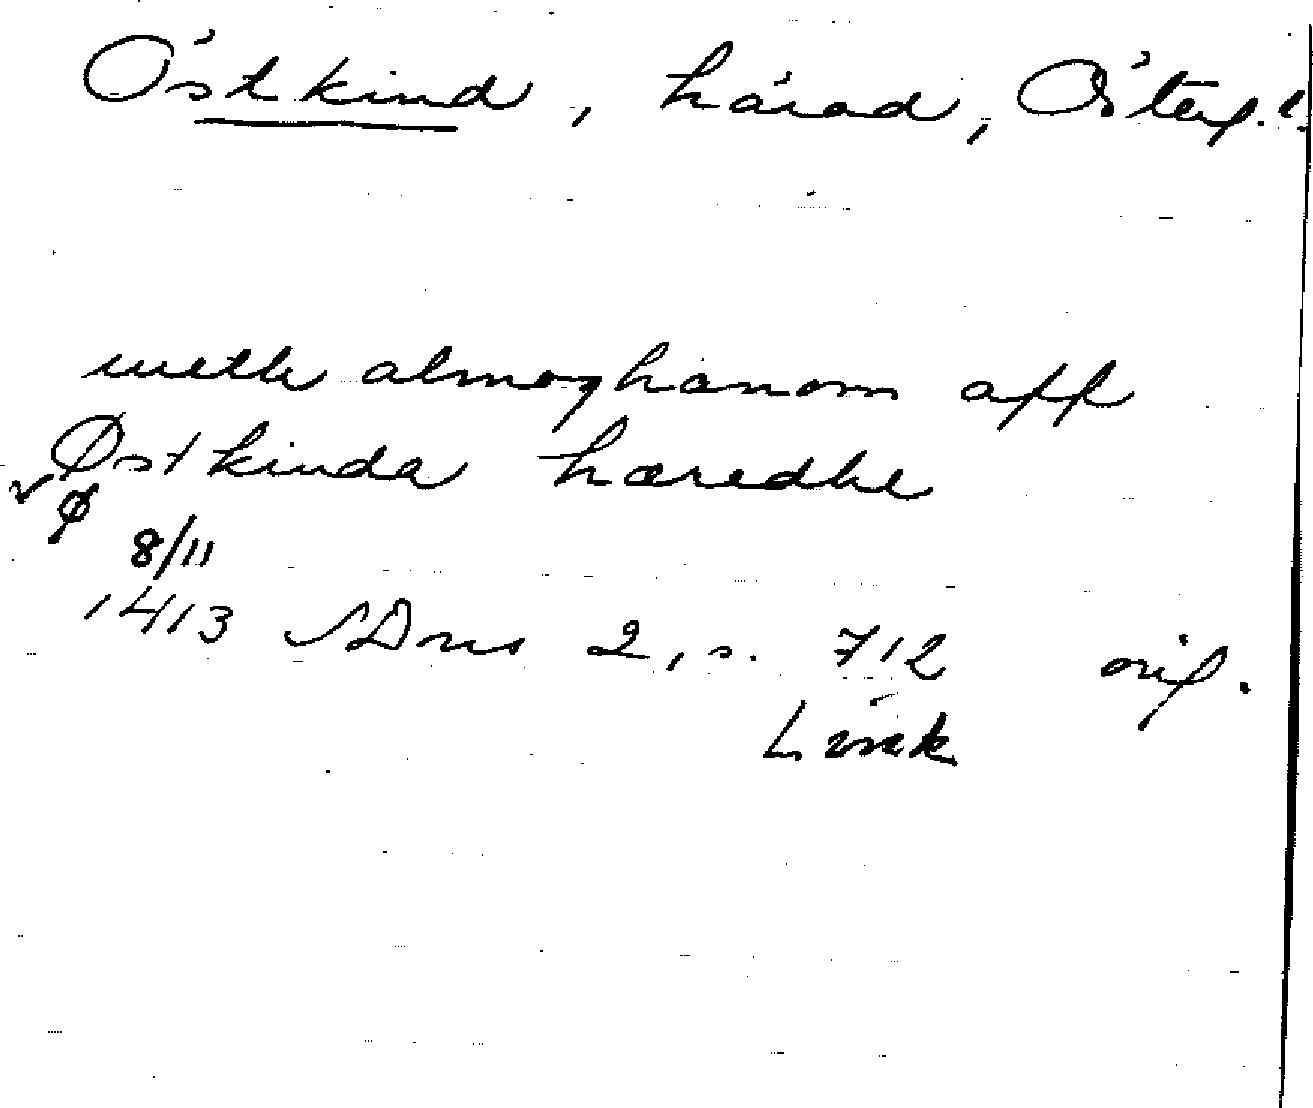 Östkind, härad, Österg. l.
meth almoghanom aff
Østkinda hæredhe
Ø
8/11
1413 SDns 2, s. 712 orig.
Link